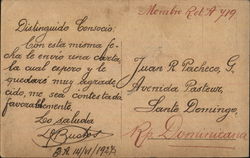 Miembro Ret. A 419
Distinguido Consocio:
Con esta misma fe-
cha le envío una carta,
la cual espero y le
quedaré muy agrade-
cido, me sea contestada
favorablemente
Lo saluda
Bustos
14/VI/1933
Juan R. Pacheco, G.
Avenida Pasteur,
Santo Domingo,
Rp. Dominicana